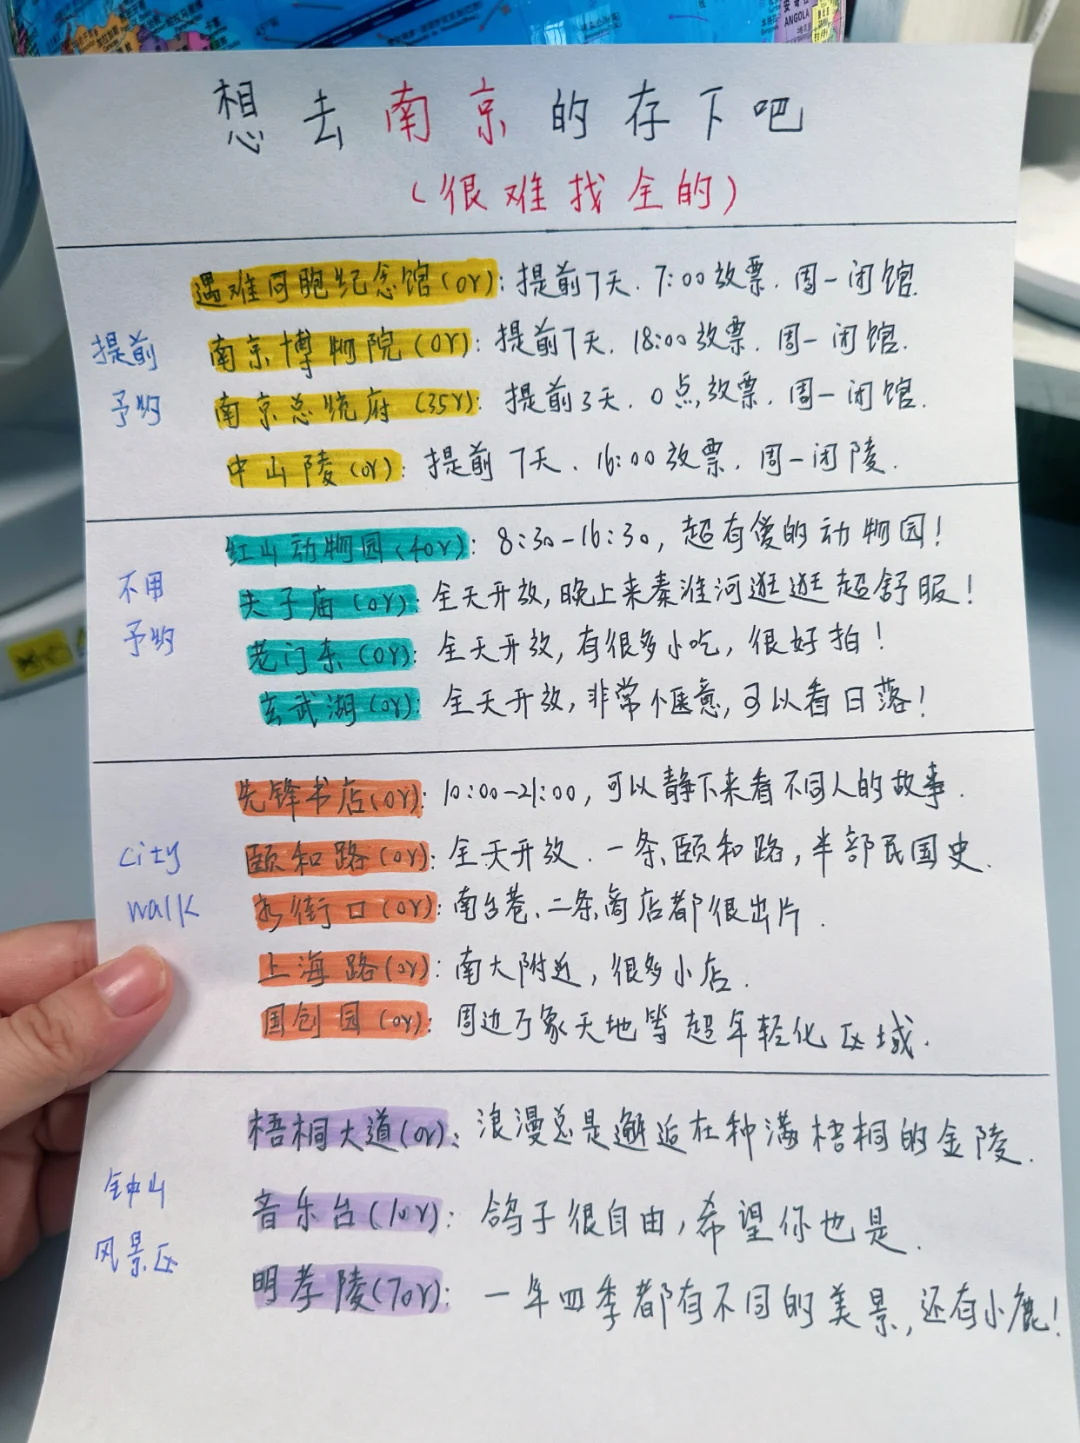 想去南京的存下吧
(很难找全的)
提前
予约
遇难同胞纪念馆(0Y): 提前7天. 7:00放票. 周一闭馆.
南京博物院(0Y): 提前7天. 18:00放票. 周一闭馆.
南京总统府(35Y): 提前3天. 0点放票. 周一闭馆.
中山陵(0Y): 提前7天. 16:00放票. 周一闭陵.
不用
予约
红山动物园(40Y): 8:30-16:30, 超有爱的动物园!
夫子庙(0Y): 全天开放, 晚上来秦淮河逛逛超舒服!
老门东(0Y): 全天开放, 有很多小吃, 很好拍!
玄武湖(0Y): 全天开放, 非常惬意, 可以看日落!
city
walk
先锋书店(0Y): 10:00-21:00, 可以静下来看不同人的故事.
颐和路(0Y): 全天开放. 一条颐和路, 半部民国史.
街口(0Y): 南台巷、二条商店都很出片.
上海路(0Y): 南大附近, 很多小店.
国创园(0Y): 周边万象天地等超年轻化区域.
钟山
风景区
梧桐大道(0Y): 浪漫总是邂逅在种满梧桐的金陵.
音乐台(10Y): 鸽子很自由, 希望你也是.
明孝陵(70Y): 一年四季都有不同的美景, 还有小鹿!
ANGOLA